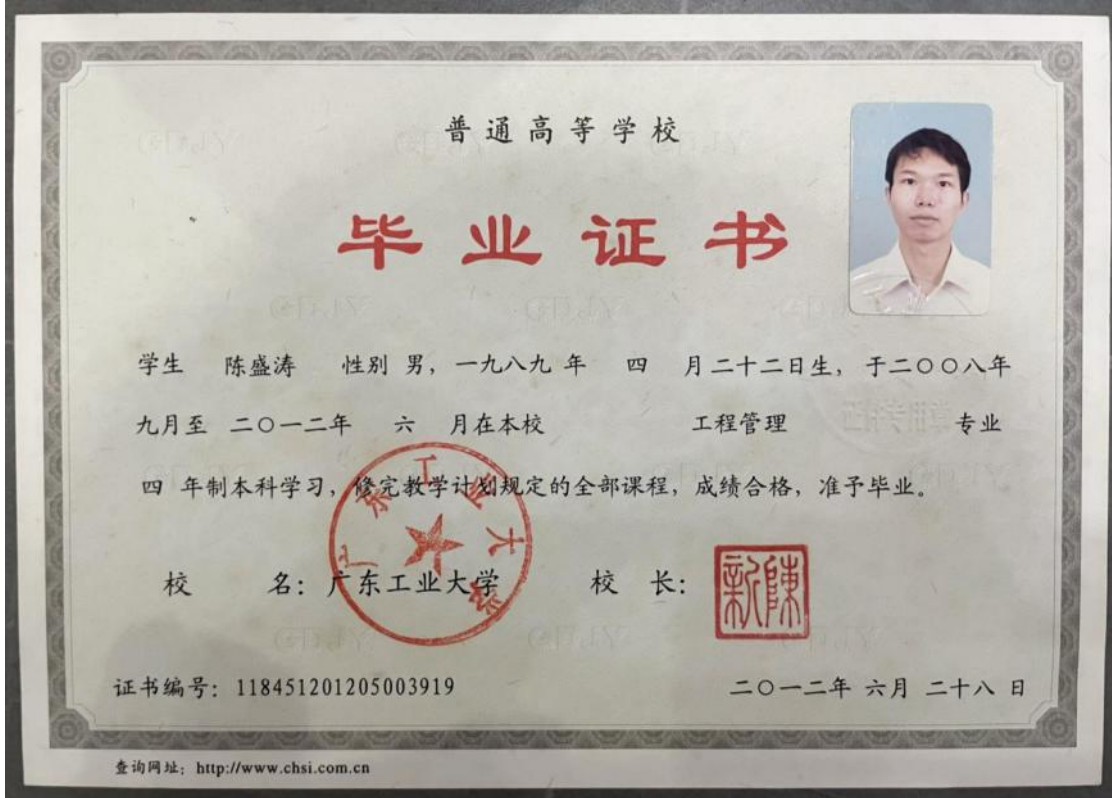 普通高等学校
毕业证书
学生 陈盛涛 性别 男，一九八九 年 四 月二十二日生，于二〇〇八年
九月至 二〇一二年 六 月在本校 工程管理 专业
四 年制本科学习，修完教学计划规定的全部课程，成绩合格，准予毕业。
校 名：广东工业大学 校 长：
广东工业大学
新陳
证书编号：118451201205003919 二〇一二年 六月 二十八 日
查询网址：http://www.chsi.com.cn